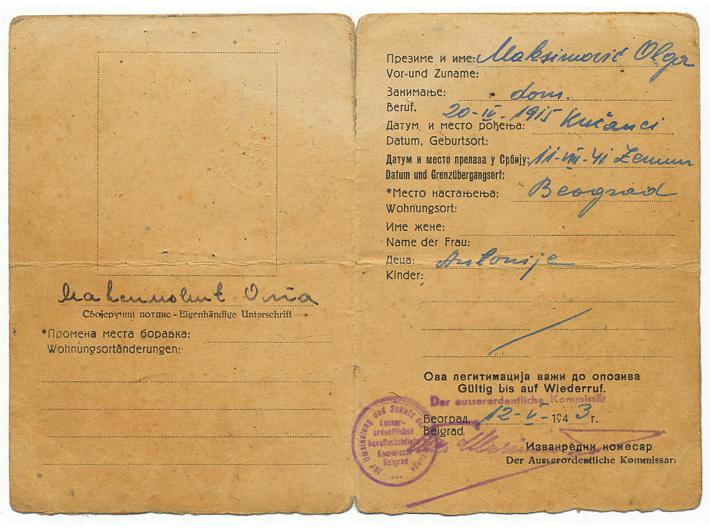 Максимовић Олга
Својеручни потпис - Eigenhändige Unterschrift
*Промена места боравка:
Wohnungsortänderungen:
Презиме и име: Maksimović Olga
Vor-und Zuname:
Занимање: dom.
Beruf.
Датум и место рођења: 20-IV-1915 Kućanci
Datum, Geburtsort:
Датум и место прелаза у Србију: 11-VIII-41 Zemun
Datum und Grenzübergangsort:
*Место настањења: Beograd
Wohnungsort:
Име жене:
Name der Frau:
Деца: Antonije
Kinder:
Ова легитимација важи до опозива
Gültig bis auf Wiederruf.
Der ausserordentliche Kommissär
Београд, 12-V-1943 г.
Belgrad
Изванредни комесар
Der Ausserordentliche Kommissar:
für Umsiedlung und Schutz
Ausser-
ordentlicher
bevollmächtigter
Kommissar
Belgrad